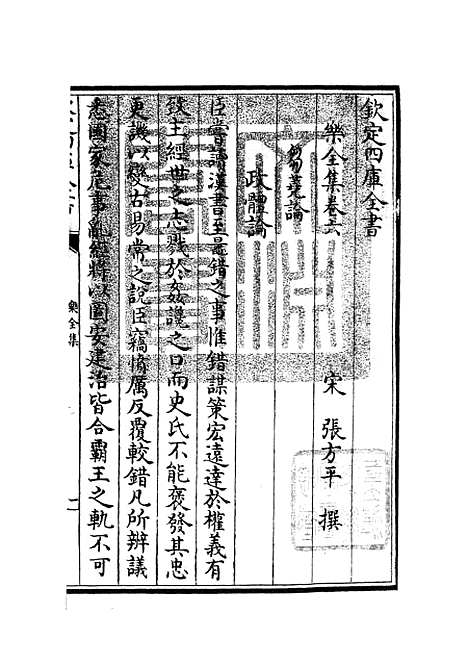 欽定四庫全書
樂全集卷六
宋 張方平 撰
芻蕘論
政體論
臣嘗讀漢書至鼂錯之事惟錯謀策宏遠達於權義有
致主經世之志戕於姦讒之口而史氏不能褒發其忠
更譏以變古易常之說臣竊憤厲反覆較錯凡所辨議
悉國家庶事亂經將以圖安建治皆合霸王之軌不可
樂全集
一